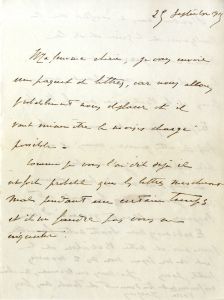 25 Septembre
Ma femme chérie, je vous envoie
un paquet de lettres, car nous allons
probablement nous déplacer et il
vaut mieux être le moins chargé
possible –
Comme je vous l'ai dit déjà il
est fort probable que les lettres
mal pendant un certain temps
et il ne faudra pas vous en
inquiéter.